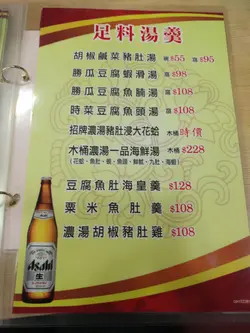 足料湯羹
胡椒鹹菜豬肚湯 碗$55 窩$95
勝瓜豆腐蝦滑湯 窩$98
勝瓜豆腐魚腩湯 窩$108
時菜豆腐魚頭湯 窩$108
招牌濃湯豬肚浸大花蛤 木桶 時價
木桶濃湯一品海鮮湯 木桶$228
(花蛤、魚肚、蝦、魚頭、鮮魷、九肚、海蝦)
豆腐魚肚海皇羹 $128
粟米魚肚羹 $108
濃湯胡椒豬肚雞 $108
Asahi
生